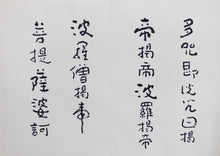 多咒即說咒曰揭
帝揭帝波羅揭帝
波羅僧揭帝
菩提薩婆訶